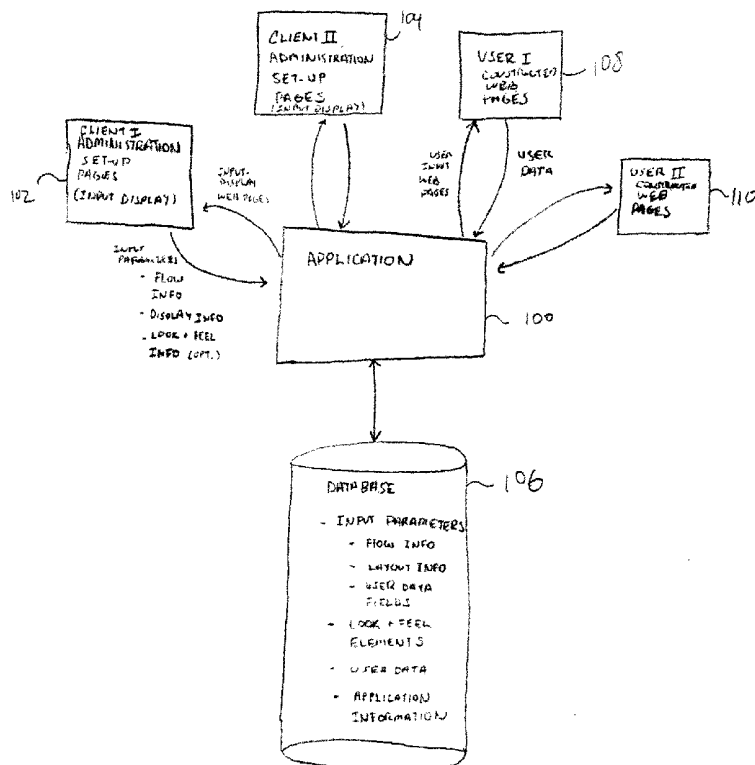 CLIENT II
ADMINISTRATION
SET-UP
PAGES
(INPUT DISPLAY)
104
USER I
CONSTRUCTED
WEB
PAGES
108
CLIENT I
ADMINISTRATION
SET-UP
PAGES
(INPUT DISPLAY)
102
INPUT-
DISPLAY
WEB PAGES
USER
INPUT
WEB
PAGES
USER
DATA
USER II
CONSTRUCTED
WEB
PAGES
110
INPUT
PARAMETERS
- FLOW
INFO
- DISPLAY INFO
- LOOK + FEEL
INFO (OPT.)
APPLICATION
100
DATABASE
106
- INPUT PARAMETERS
- FLOW INFO
- LAYOUT INFO
- USER DATA
FIELDS
- LOOK + FEEL
ELEMENTS
- USER DATA
- APPLICATION
INFORMATION